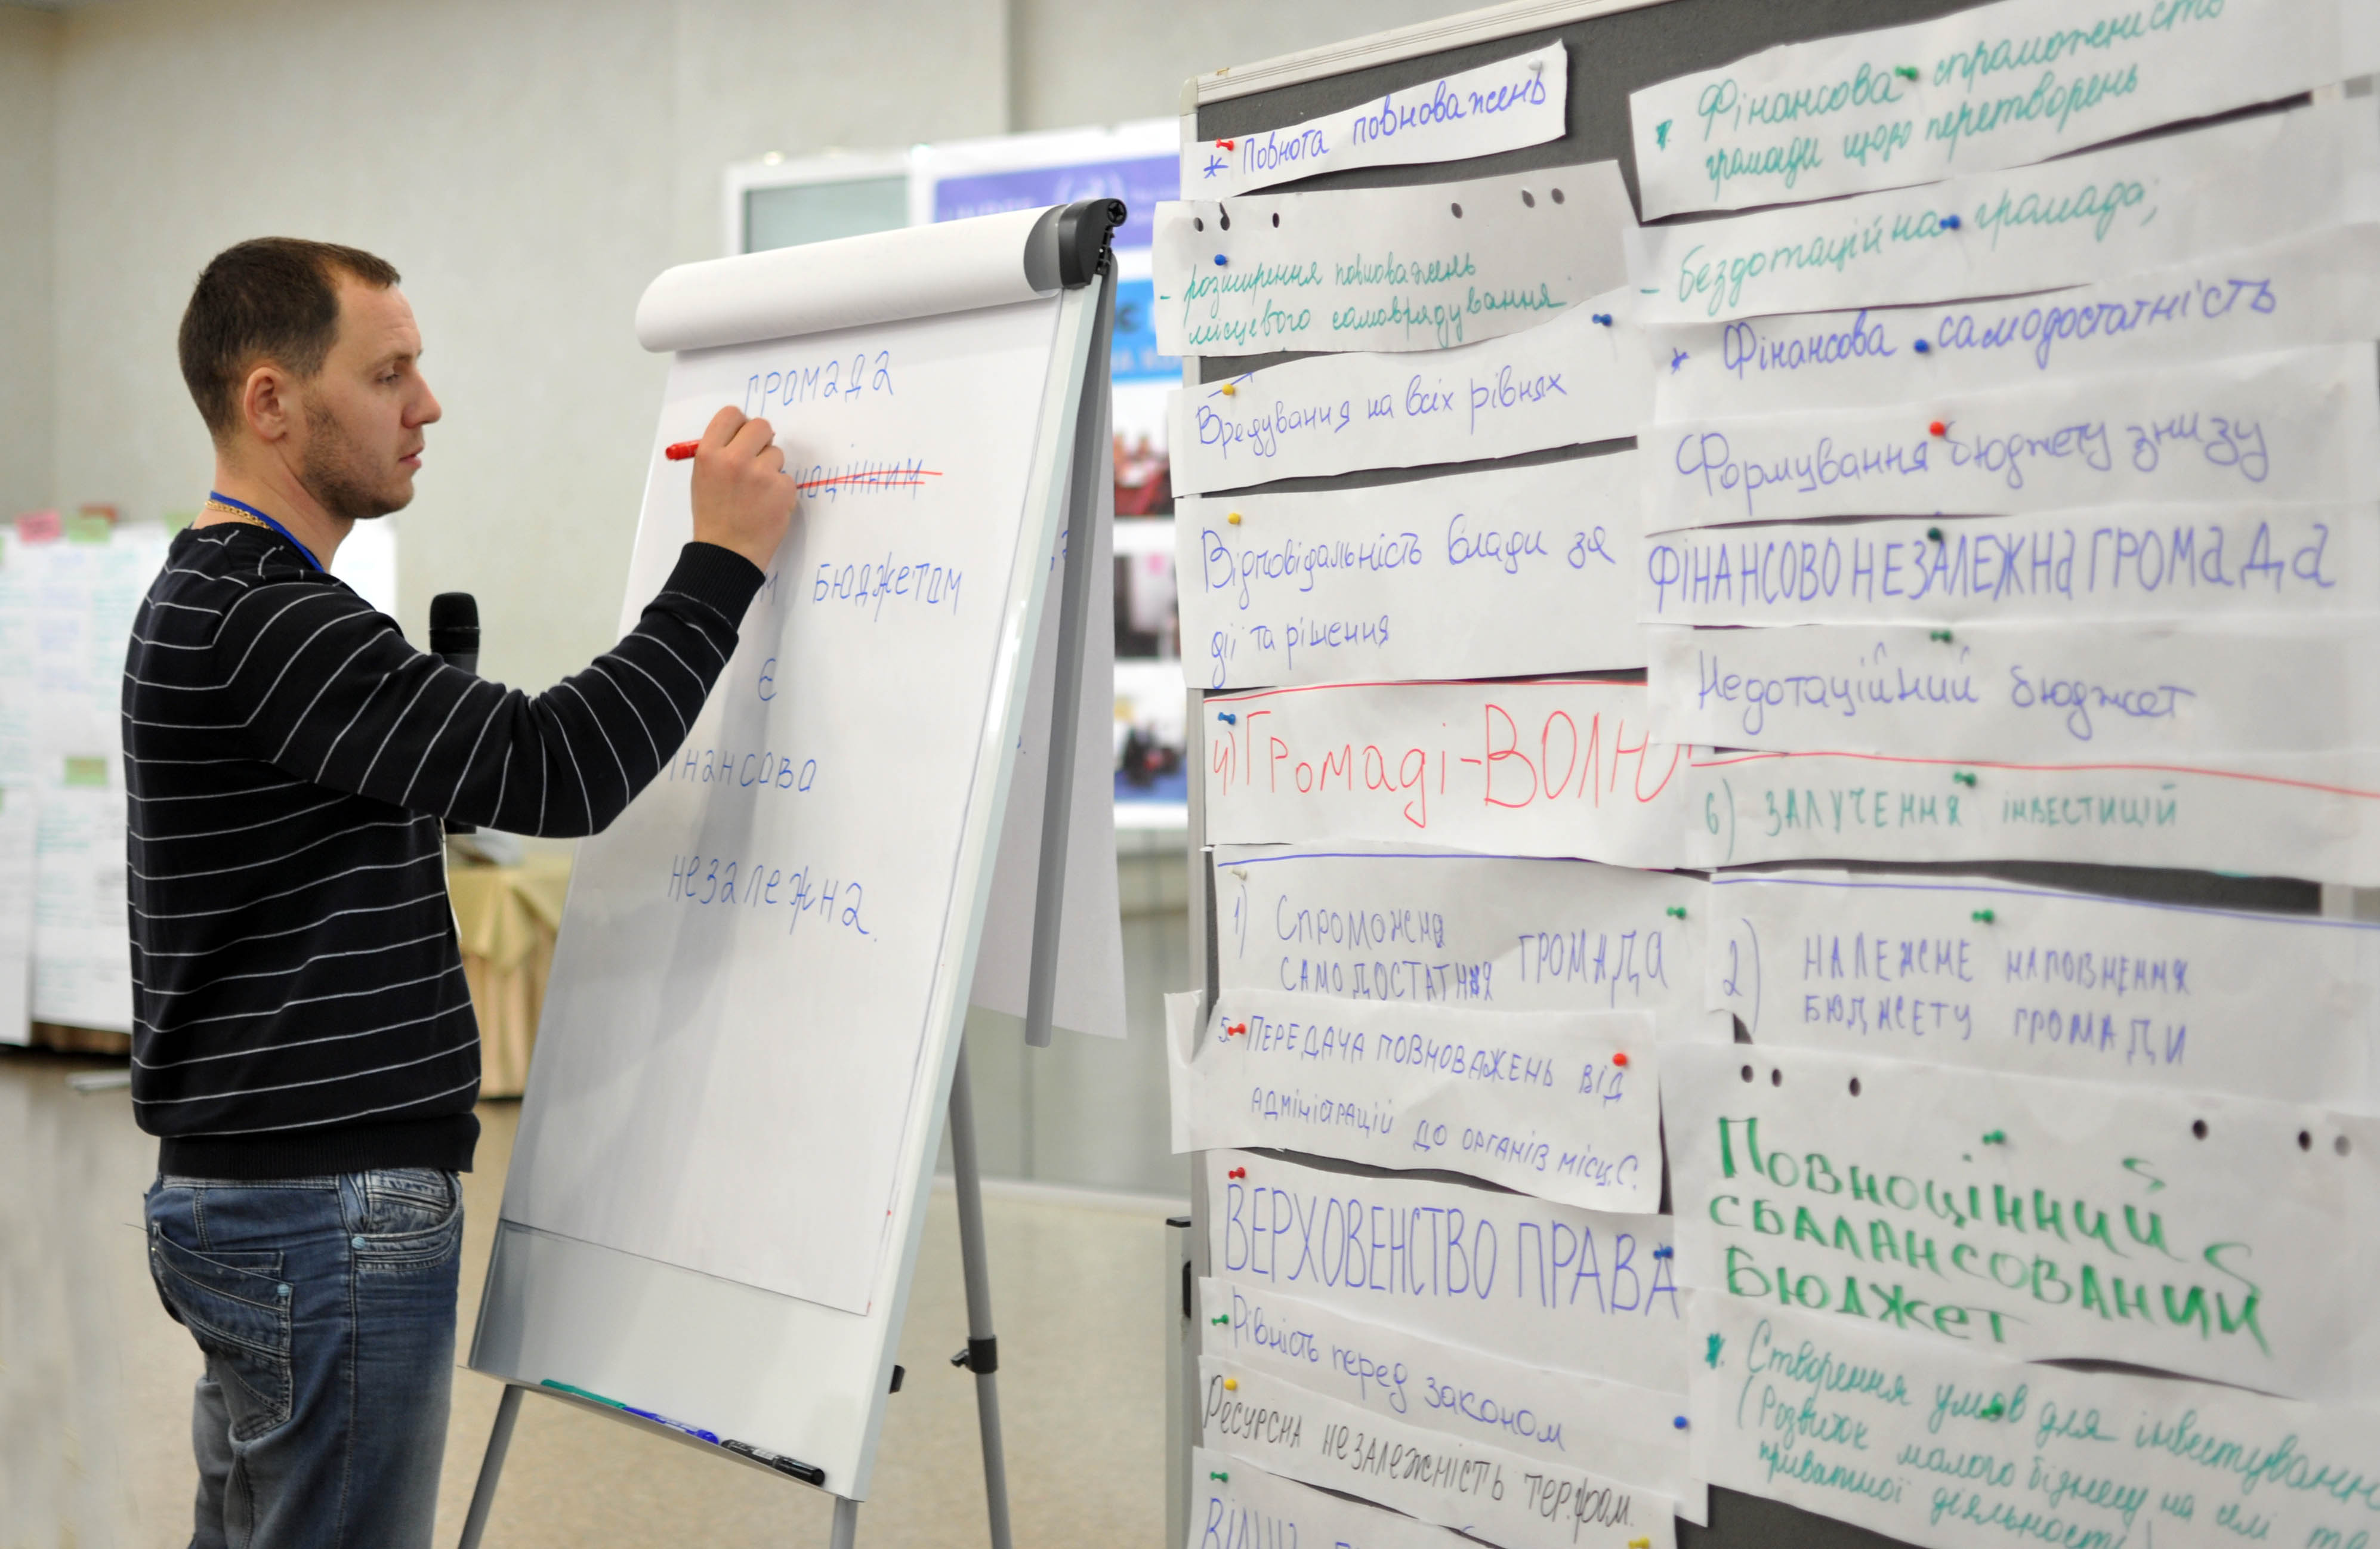 ГРОМАДА
ноцінним
БЮДЖЕТОМ
Є
нансово
незалежна.
* Повнота повноважень
- розширення повноважень
місцевого самоврядування
Врядування на всіх рівнях
Відповідальність влади за
дії та рішення
4) Громаді-ВОЛЮ
1) СПРОМОЖНА
САМОДОСТАТНЯ ГРОМАДА
5. ПЕРЕДАЧА ПОВНОВАЖЕНЬ ВІД
АДМІНІСТРАЦІЙ ДО ОРГАНІВ МІСЦ.С.
ВЕРХОВЕНСТВО ПРАВА
Рівність перед законом
РЕСУРСНА НЕЗАЛЕЖНІСТЬ ТЕР.ГРОМ.
* Фінансова спроможність
громади щодо перетворень
- бездотаційна громада;
* Фінансова самодостатність
Формування бюджету знизу
ФІНАНСОВО НЕЗАЛЕЖНА ГРОМАДА
Недотаційний бюджет
6) ЗАЛУЧЕННЯ ІНВЕСТИЦІЙ
2) НАЛЕЖНЕ НАПОВНЕННЯ
БЮДЖЕТУ ГРОМАДИ
ПОВНОЦІННИЙ
СБАЛАНСОВАНИЙ
БЮДЖЕТ
* Створення умов для інвестування
(Розвиток малого бізнесу на селі та
приватної діяльності)